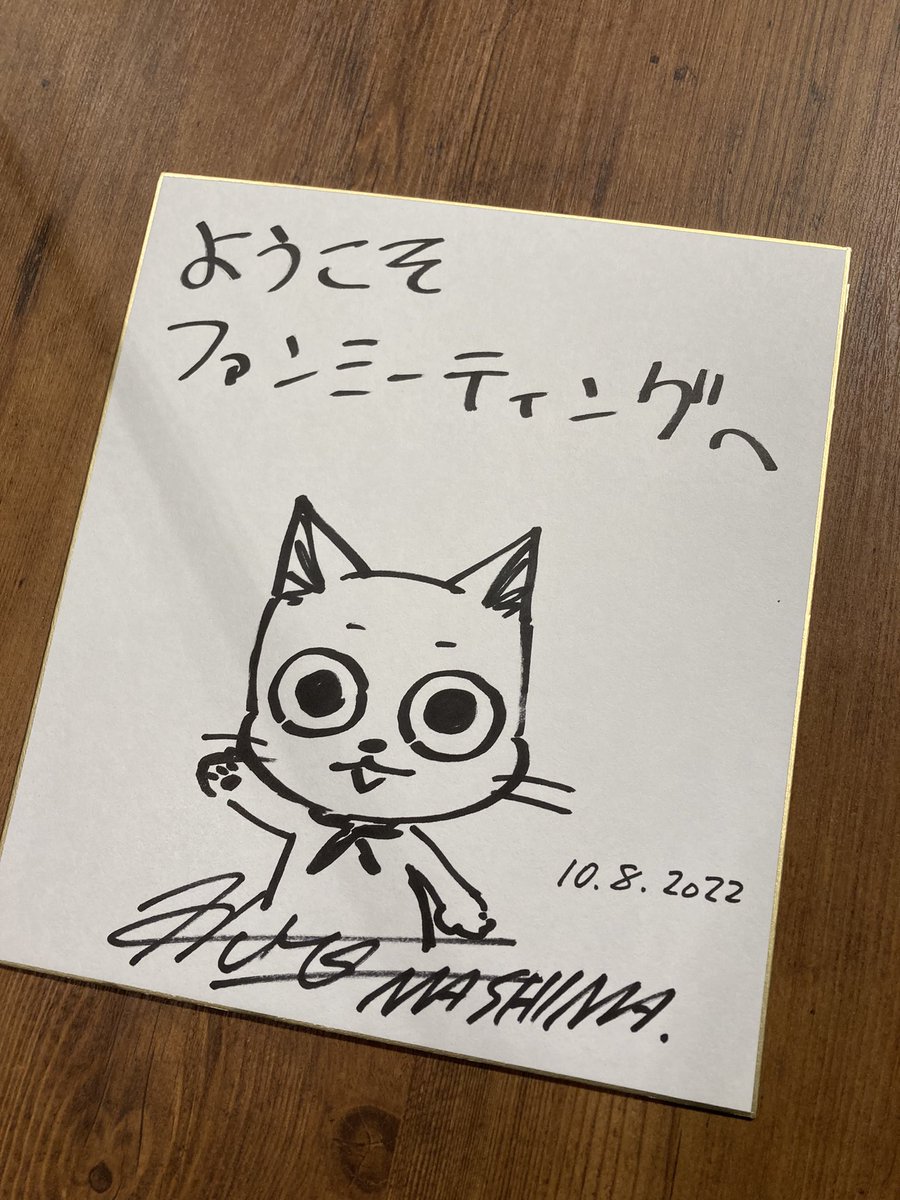 ようこそ
ファンミーティングへ
10.8.2022
HIRO MASHIMA.